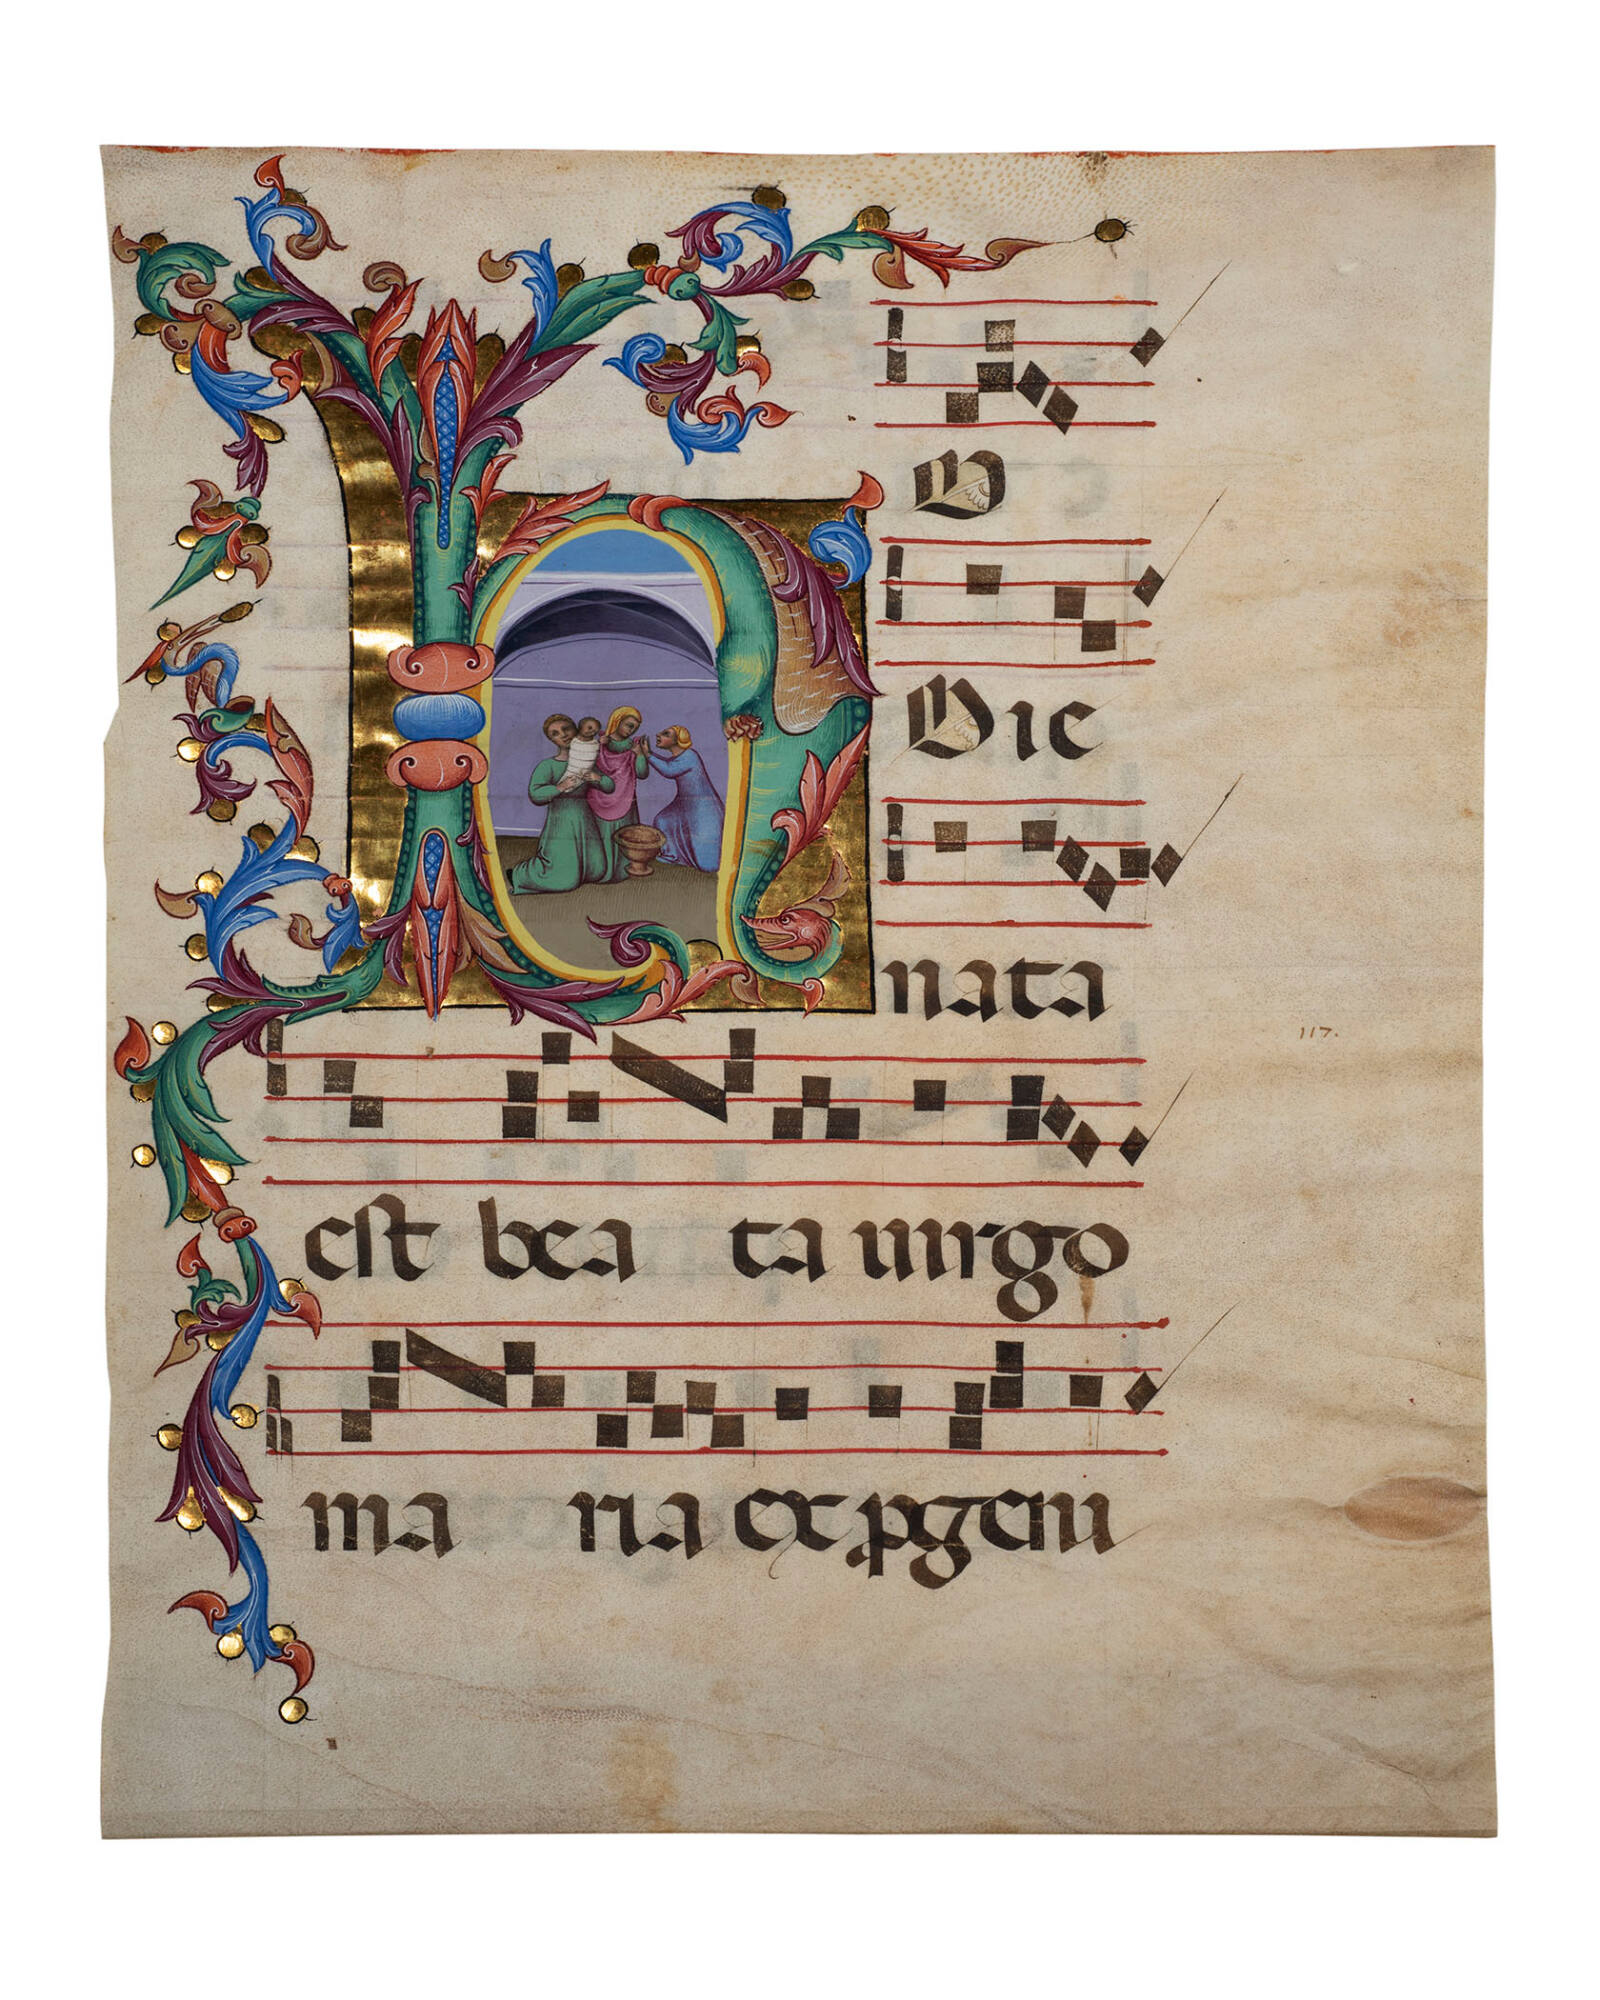 H O
Die
nata
117.
est bea ta uirgo
ma ria ex ꝓgeni